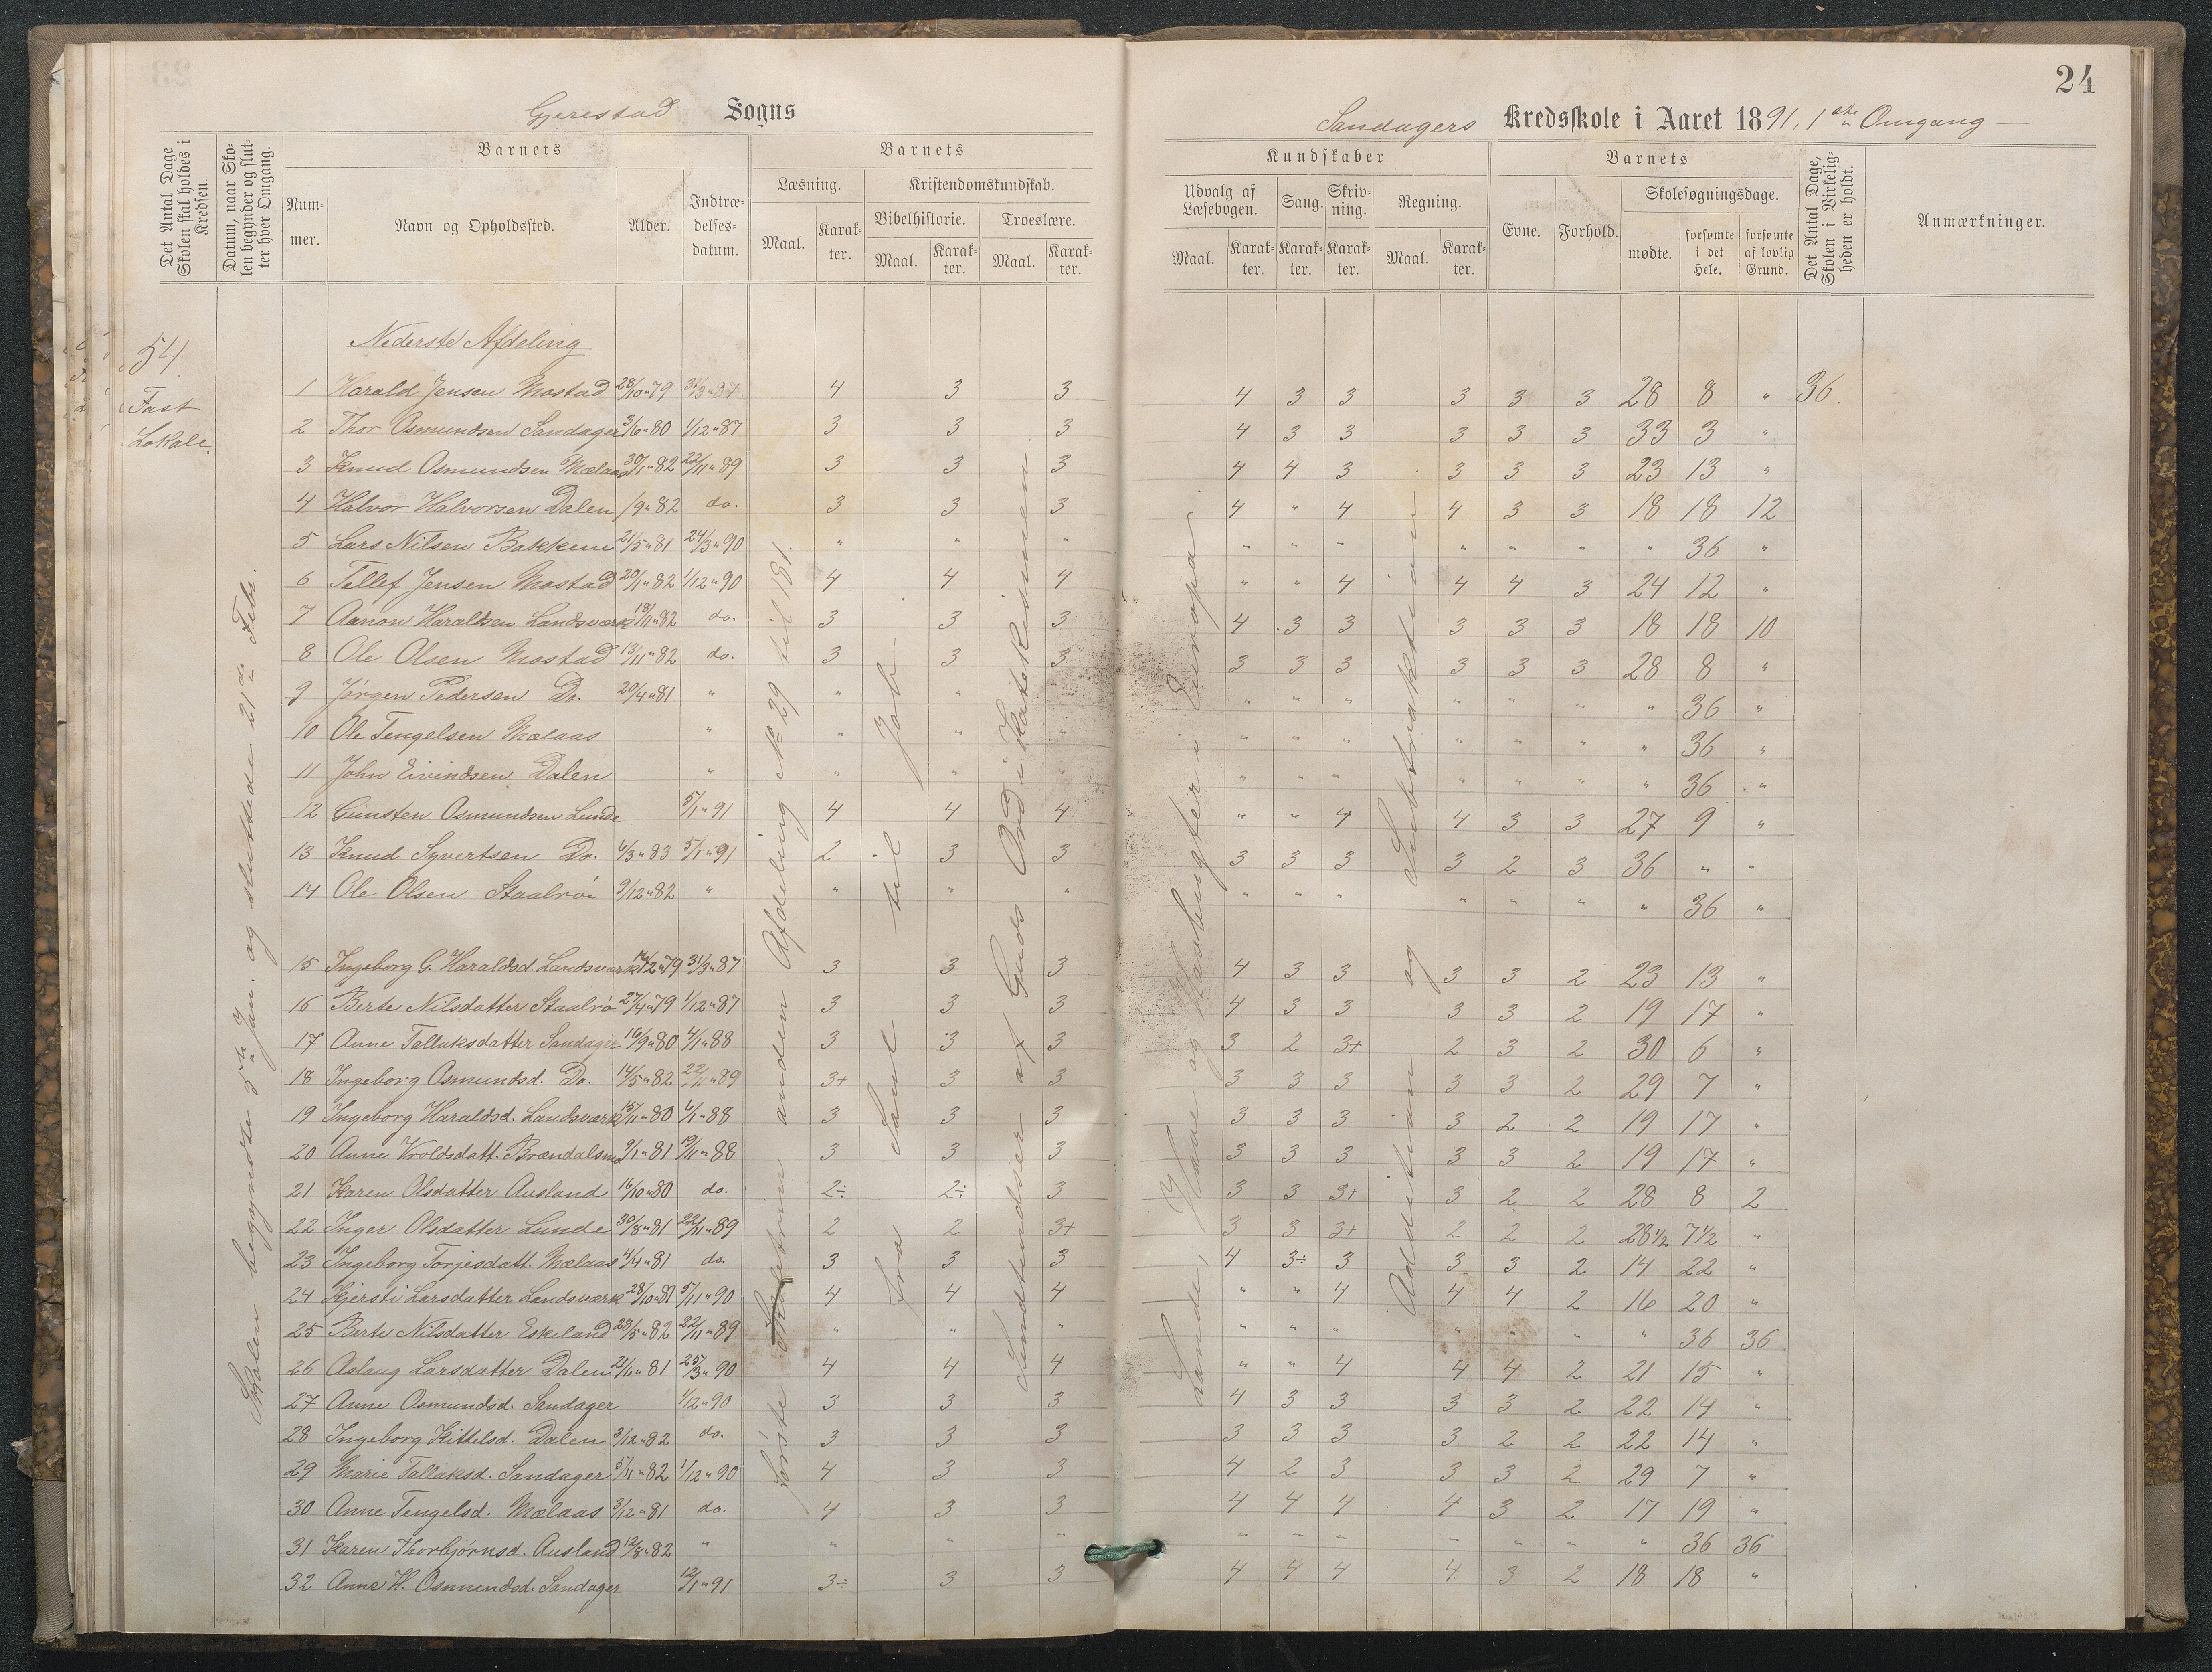 24
Gjerestad Sogns
Sandagers Kredsskole i Aaret 1891, 1ste Omgang
Det Antal Dage Skolen skal holdes i Kredsen.
Datum, naar Skolen begynder og slutter hver Omgang.
Barnets
Nummer.
Navn og Opholdssted.
Alder.
Indtrædelsesdatum.
Barnets
Læsning.
Maal.
Karakter.
Kristendomskundskab.
Bibelhistorie.
Maal.
Karakter.
Troeslære.
Maal.
Karakter.
Kundskaber
Udvalg af Læsebogen.
Maal.
Karakter.
Sang.
Karakter.
Skrivning.
Karakter.
Regning.
Maal.
Karakter.
Barnets
Evne.
Forhold.
Skolesøgningsdage.
mødte.
forsømte i det Hele.
forsømte af lovlig Grund.
Det Antal Dage, Skolen i Virkeligheden er holdt.
Anmærkninger.
54
Fast
Lokale.
Skolen begyndte 5te Jan. og sluttede 21de Febr.
Nederste Afdeling
1 Harald Jensen Mostad 28/10 "79 31/3 "87 4 3 3 4 3 3 3 3 3 28 8 " 36.
2 Thor Osmundsen Sandager 3/6 "80 1/12 "87 3 3 3 4 3 3 3 3 3 33 3 "
3 Knud Osmundsen Mælaas 30/1 "82 22/11 "89 3 3 3 4 4 3 3 3 3 23 13 "
4 Halvor Halvorsen Dalen /9 "82 do. 3 3 3 4 " 4 4 3 3 18 18 12
5 Lars Nilsen Bakkene 21/5 "81 24/3 "90 " " " " " " " " " " 36 "
6 Tellef Jensen Mostad 20/1 "82 1/12 "90 4 4 4 " " 4 4 4 3 24 12 "
7 Aanon Haraldsen Landsværk 18/11 "82 do. 3 3 3 4 3 3 3 3 3 18 18 10
8 Ole Olsen Mostad 13/11 "82 do. 3 3 3 3 3 3 3 3 3 28 8 "
9 Jørgen Pedersen Do. 20/4 "81 " " " " " " " " " " " 36 "
10 Ole Tengelsen Mælaas " " " " " " " " " " " 36 "
11 John Eivindsen Dalen " " " " " " " " " " " 36 "
12 Gunsten Osmundsen Lunde 5/1 "91 4 4 4 " " 4 4 3 3 27 9 "
13 Knud Syvertsen Do. 6/3 "83 5/1 "91 2 3 3 3 3 3 3 2 3 36 " "
14 Ole Olsen Staalrøi 9/12 "82 " " " " " " " " " " " 36 "
15 Ingeborg G. Haraldsd. Landsværk 14/2 "79 31/3 "87 3 3 3 4 3 3 3 3 2 23 13 "
16 Berte Nilsdatter Staalrø 27/4 "79 1/12 "87 3 3 3 4 3 3 3 3 2 19 17 "
17 Anne Tallaksdatter Sandager 16/9 "80 4/1 "88 3 3 3 3 2 3+ 2 3 2 30 6 "
18 Ingeborg Osmundsd. Do. 14/5 "82 22/11 "89 3+ 3 3 3 3 3 3 3 2 29 7 "
19 Ingeborg Haraldsd. Landsværk 15/11 "80 6/1 "88 3 3 3 3 3 3 3 2 2 19 17 "
20 Anne Vroldsdatt. Brændalsmo 9/1 "81 19/11 "88 3 3 3 3 3 3 3 3 2 19 17 "
21 Karen Olsdatter Ausland 16/10 "80 do. 2÷ 2÷ 3 3 3 3+ 3 2 2 28 8 2
22 Inger Olsdatter Lunde 30/8 "81 22/11 "89 2 2 3+ 3 3 3+ 2 2 2 28½ 7½ "
23 Ingeborg Torjesdatt. Mælaas 4/4 "81 do. 3 3 3 4 3÷ 3 3 3 2 14 22 "
24 Kjersti Larsdatter Landsværk 28/10 "81 5/11 "90 4 4 4 " " 4 4 4 2 16 20 "
25 Berte Nilsdatter Eskeland 28/5 "82 22/11 "89 " " " " " " " " " " 36 36
26 Aslaug Larsdatter Dalen 21/6 "81 25/3 "90 4 4 4 " " 4 4 4 2 21 15 "
27 Anne Osmundsd. Sandager 1/12 "90 3 3 3 4 3 3 3 3 2 22 14 "
28 Ingeborg Kittelsd. Dalen 3/12 "82 do. 3 3 3 3 3 3 3 2 2 22 14 "
29 Marie Tallaksd. Sandager 5/11 "82 1/12 "90 4 3 3 4 2 3 3 3 2 29 7 "
30 Anne Tengelsd. Mælaas 3/12 "81 do. 4 3 3 4 4 4 4 3 2 17 19 "
31 Karen Thorbjørnsd. Ausland 12/8 "82 " " " " " " " " " " " 36 36
32 Anne H. Osmundsd. Sandager 12/1 "91 3÷ 3 3 4 4 4 4 3 2 18 18 "
Første anden Afdeling No 29 til 181.
Fra Saul til Job
Sandtendver af Guds Ord i Katekismen
Lande, Have og Havbugter i Europa
Addition og Subtraktion